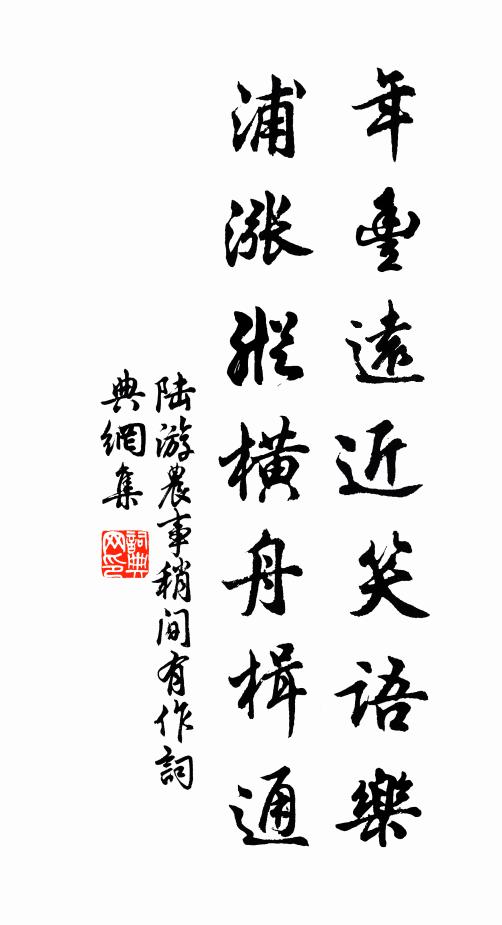 年豐遠近笑語樂
浦漲縱橫舟楫通
陆游農事稍间有作詞
典網集
詞典
网印